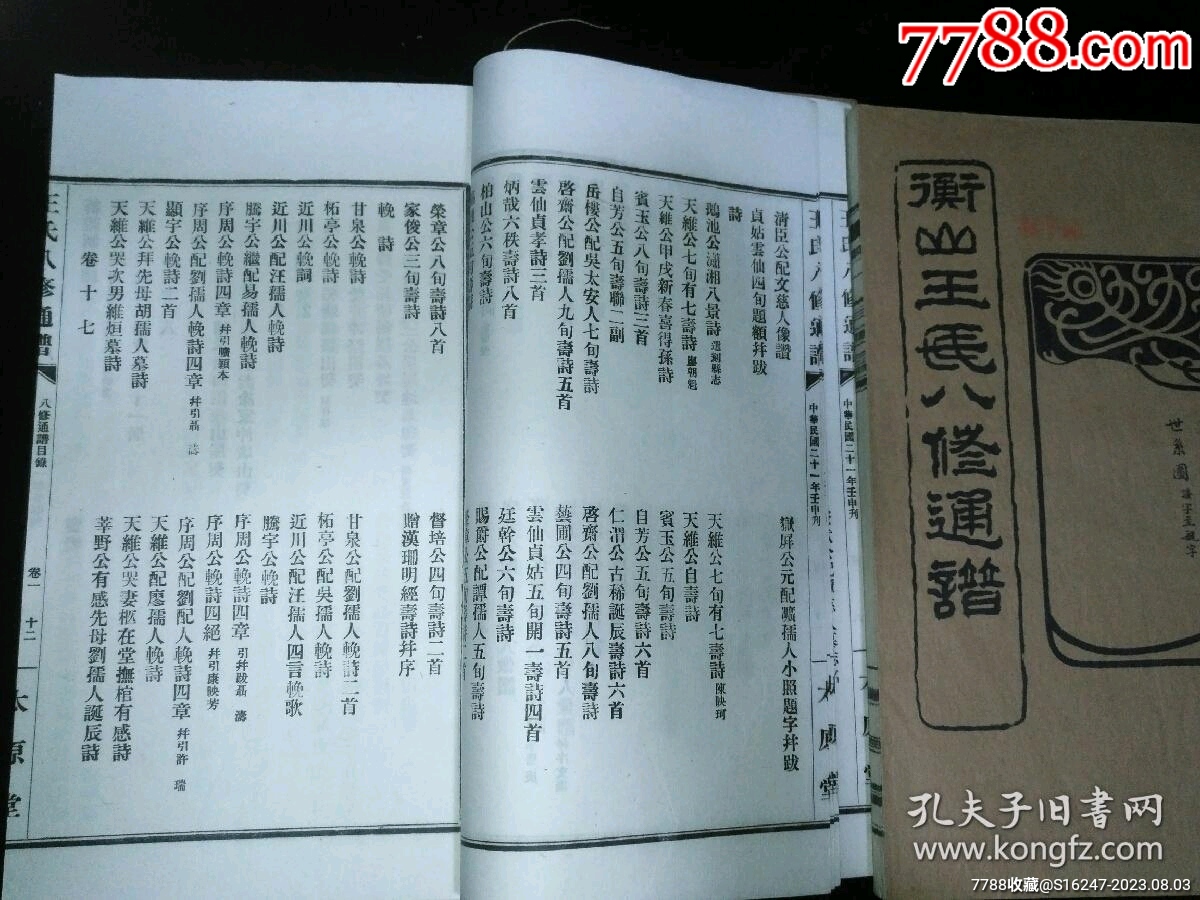 7788.com
衡山王氏八修通譜
世系圖
中華民國二十一年壬申刊
中華民國二十一年壬申刊
清臣公配文慈人像讚
嶽屏公元配曠孺人小照題字幷跋
貞姑雲仙四旬題額幷跋
詩
鵝池公瀟湘八景詩 選刻縣志
天維公七旬有七壽詩 陳映珂
天維公七旬有七壽詩 鄺朝魁
天維公自壽詩
天維公甲戌新春喜得孫詩
賓玉公五旬壽詩
賓玉公八旬壽詩三首
自芳公五旬壽詩六首
自芳公五旬壽聯二副
仁渭公古稀誕辰壽詩六首
岳樓公配吳太安人七旬壽詩
啓齋公配劉孺人八旬壽詩
啓齋公配劉孺人九旬壽詩五首
藝圃公四旬壽詩五首
雲仙貞孝詩三首
雲仙貞姑五旬開一壽詩四首
炳哉六秩壽詩八首
廷幹公六旬壽詩
柏山公六旬壽詩
賜爵公配譚孺人五旬壽詩
榮章公八旬壽詩八首
督培公四旬壽詩二首
家俊公三旬壽詩
贈漢珊明經壽詩幷序
輓詩
甘泉公輓詩
甘泉公配劉孺人輓詩二首
柘亭公輓詩
柘亭公配吳孺人輓詩
近川公輓詞
近川公配汪孺人四言輓歌
近川公配汪孺人輓詩
騰宇公輓詩
騰宇公繼配易孺人輓詩
序周公輓詩四章 引幷跋聶 濤
序周公輓詩四章 幷引曠顯本
序周公輓詩四絕 幷引康映芳
序周公配劉孺人輓詩四章 幷引聶 濤
序周公配劉配人輓詩四章 幷引許 瑞
顯宇公輓詩二首
天維公配廖孺人輓詩
天維公拜先母胡孺人墓詩
天維公哭妻柩在堂撫棺有感詩
天維公哭次男維烜墓詩
莘野公有感先母劉孺人誕辰詩
卷十七
王氏八修通譜 八修通譜目錄 卷一 十二 太原堂
孔夫子旧书网
www.kongfz.com
7788收藏@S16247-2023.08.03